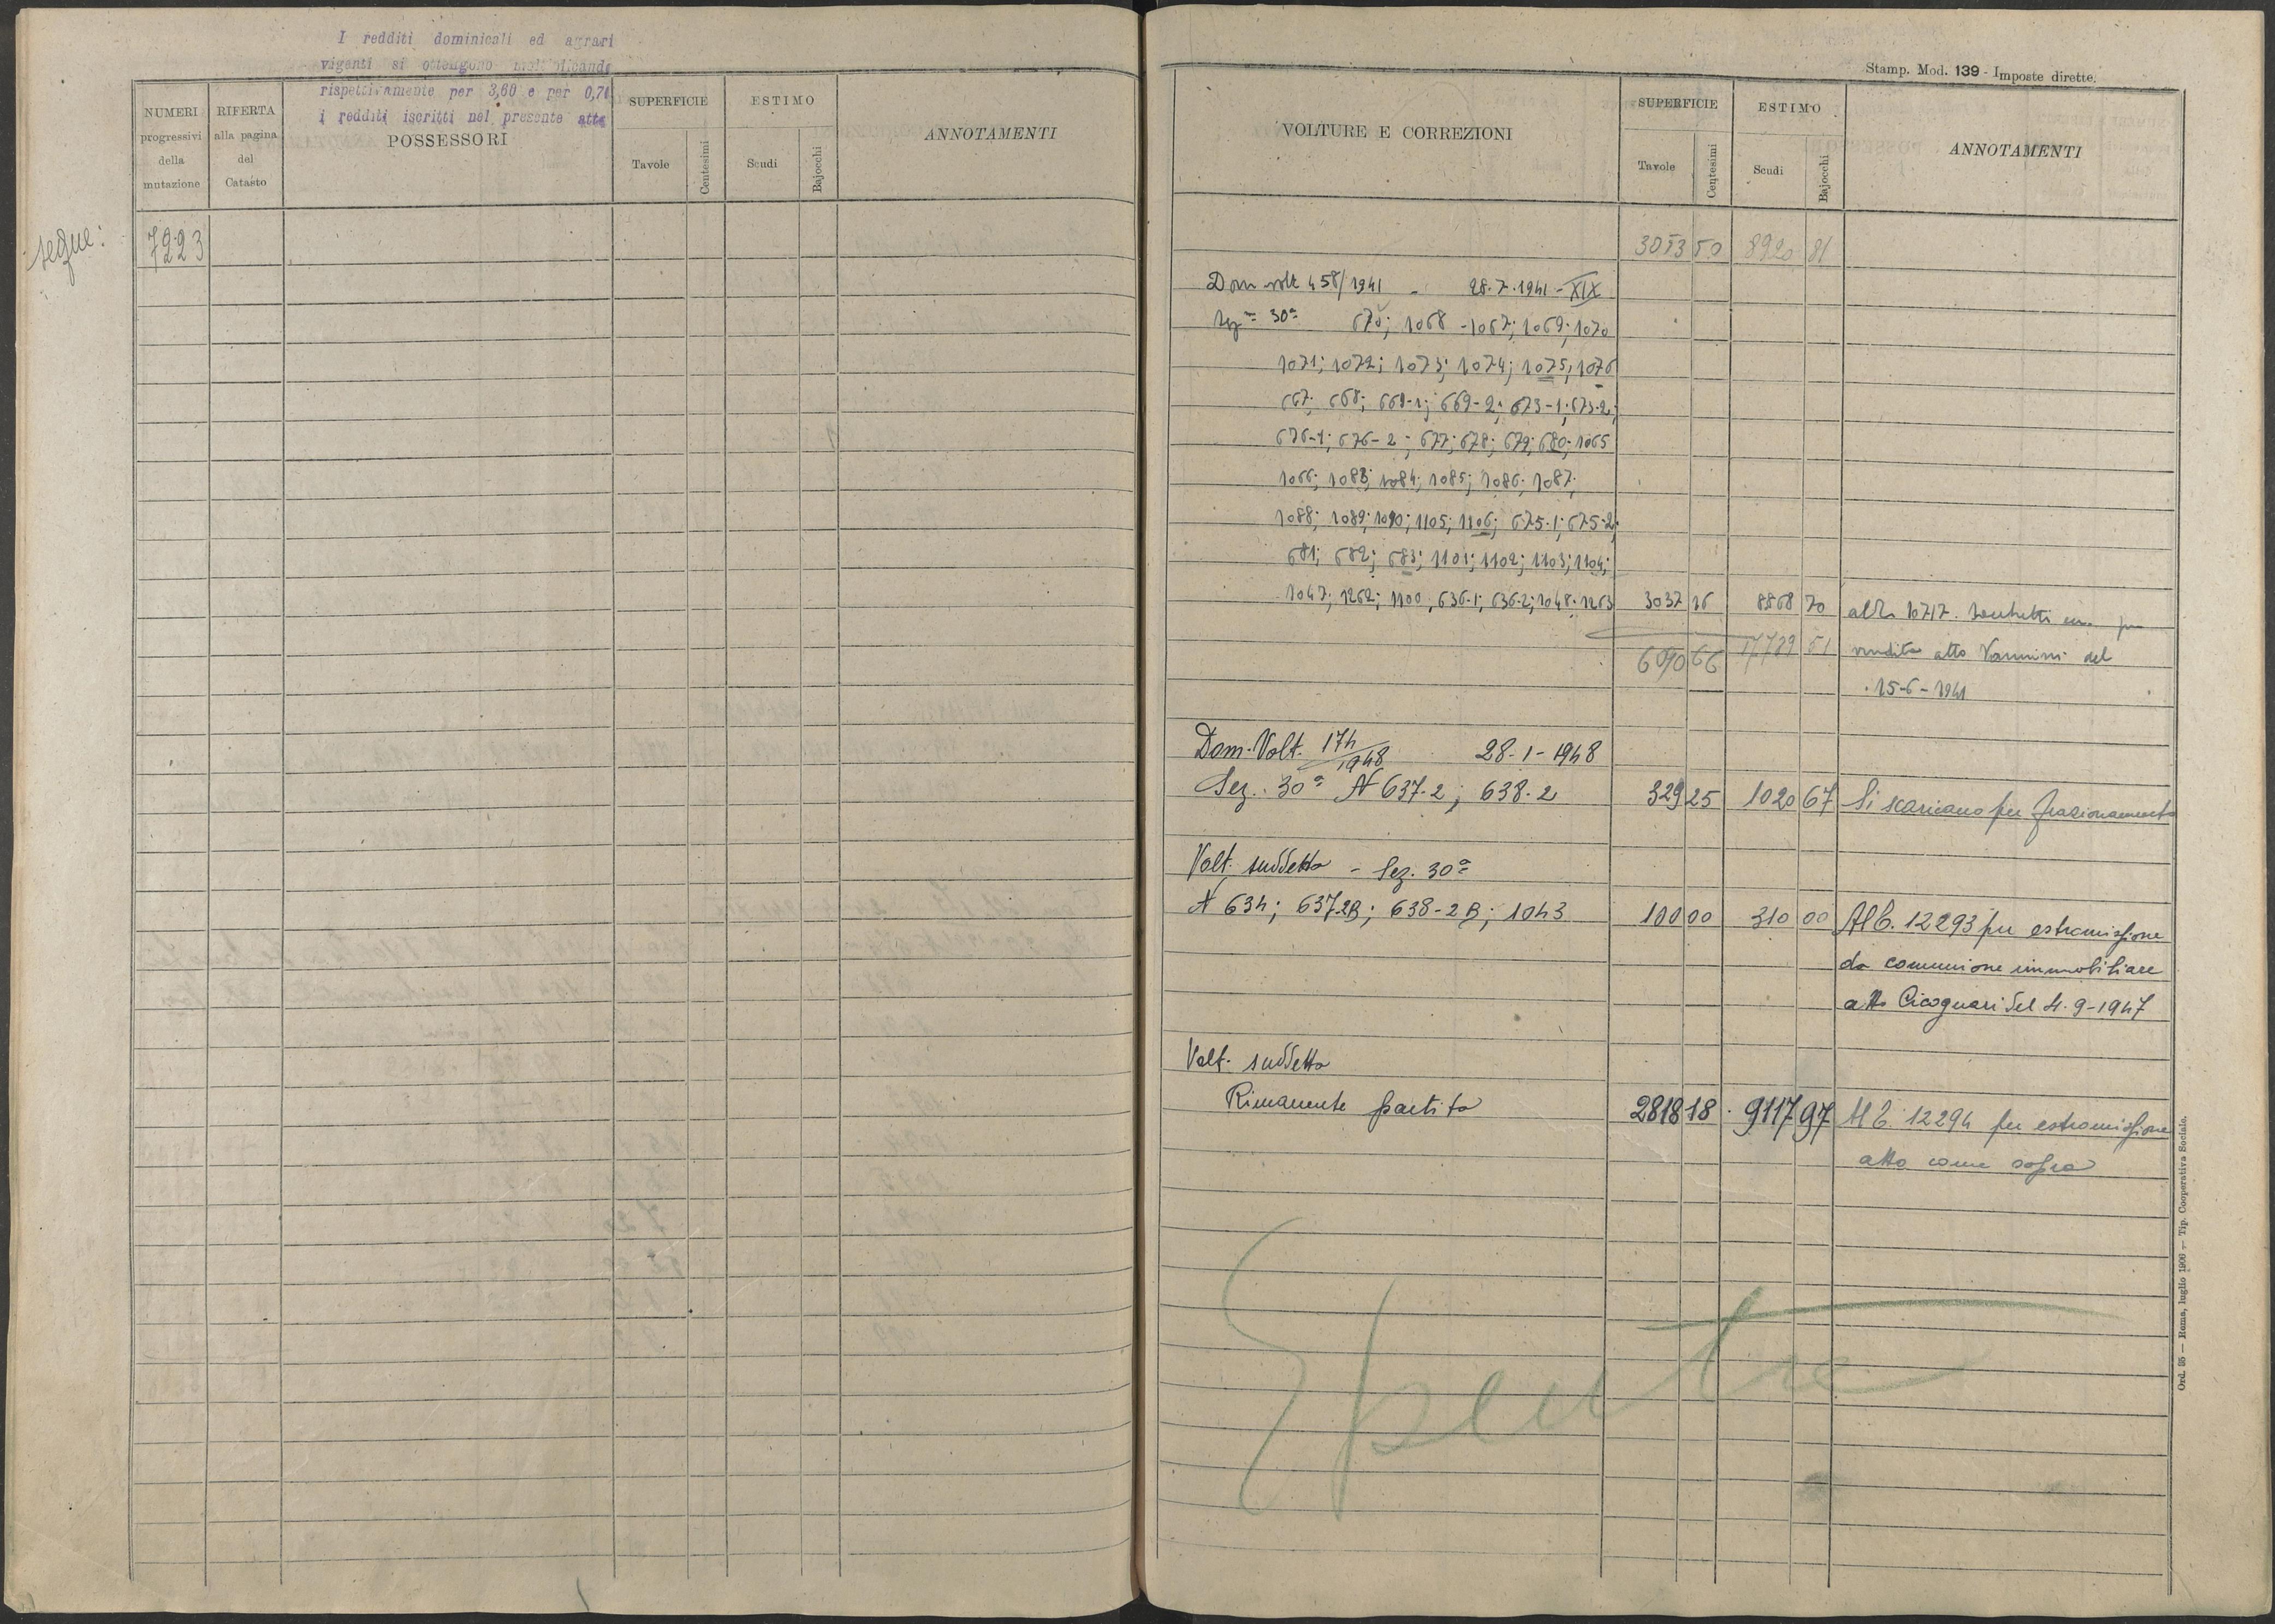 I redditi dominicali ed agrari
vigenti si ottengono moltiplicando
rispettivamente per 3,60 e per 0,70
i redditi iscritti nel presente atto
NUMERI progressivi della mutazione
RIFERTA alla pagina del Catasto
POSSESSORI
SUPERFICIE
Tavole
Centesimi
ESTIMO
Scudi
Bajocchi
ANNOTAMENTI
segue:
7223
Stamp. Mod. 139 - Imposte dirette.
VOLTURE E CORREZIONI
SUPERFICIE
Tavole
Centesimi
ESTIMO
Scudi
Bajocchi
ANNOTAMENTI
3053 50 8920 81
Dom volt 458/1941 - 28.7.1941 - XIX
30ª 670; 1068 - 1067; 1069; 1070
1071; 1072; 1073; 1074; 1075; 1076
667; 668; 669-1; 669-2; 673-1; 673-2;
676-1; 676-2; 677; 678; 679; 680; 1065
1066; 1083; 1084; 1085; 1086; 1087;
1088; 1089; 1090; 1105; 1106; 675-1; 675-2;
681; 682; 683; 1101; 1102; 1103; 1104;
1047; 1262; 1100; 636-1; 636-2; 1048; 1263 3037 16 8868 70 10717
6090 66 17789 51 vendita atto Vannini del
15-6-1941
Dom. Volt. 174/1948 28-1-1948
Sez. 30ª N 637-2; 638-2 329 25 1020 67 Si scaricano per frazionamento
Volt. suddetta - Sez. 30ª
N 634; 637-2B; 638-2B; 1043 100 00 310 00 All. 12293 per estromissione
da comunione immobiliare
atto Cicognari del 4-9-1947
Volt. suddetta
Rimanente partita 2818 18 9117 97 All. 12294 per estromissione
atto come sopra
Spenta
Ord. 95 — Roma, luglio 1909 — Tip. Cooperativa Sociale.